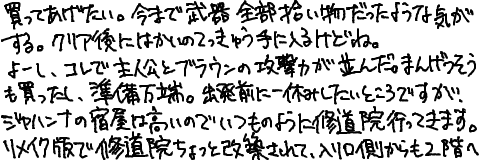 買ってあげたい。今まで武器全部拾い物だったような気が
する。クリア後にはかいのてっきゅう手に入るけどね。
よーし、コレで主人公とブラウンの攻撃力が並んだ。まんげつそう
も買ったし、準備万端。出発前に一休みしたいところですが、
ジャハンナの宿屋は高いのでいつものように修道院行ってきます。
リメイク版で修道院ちょっと改築されて、入り口側からも2階へ